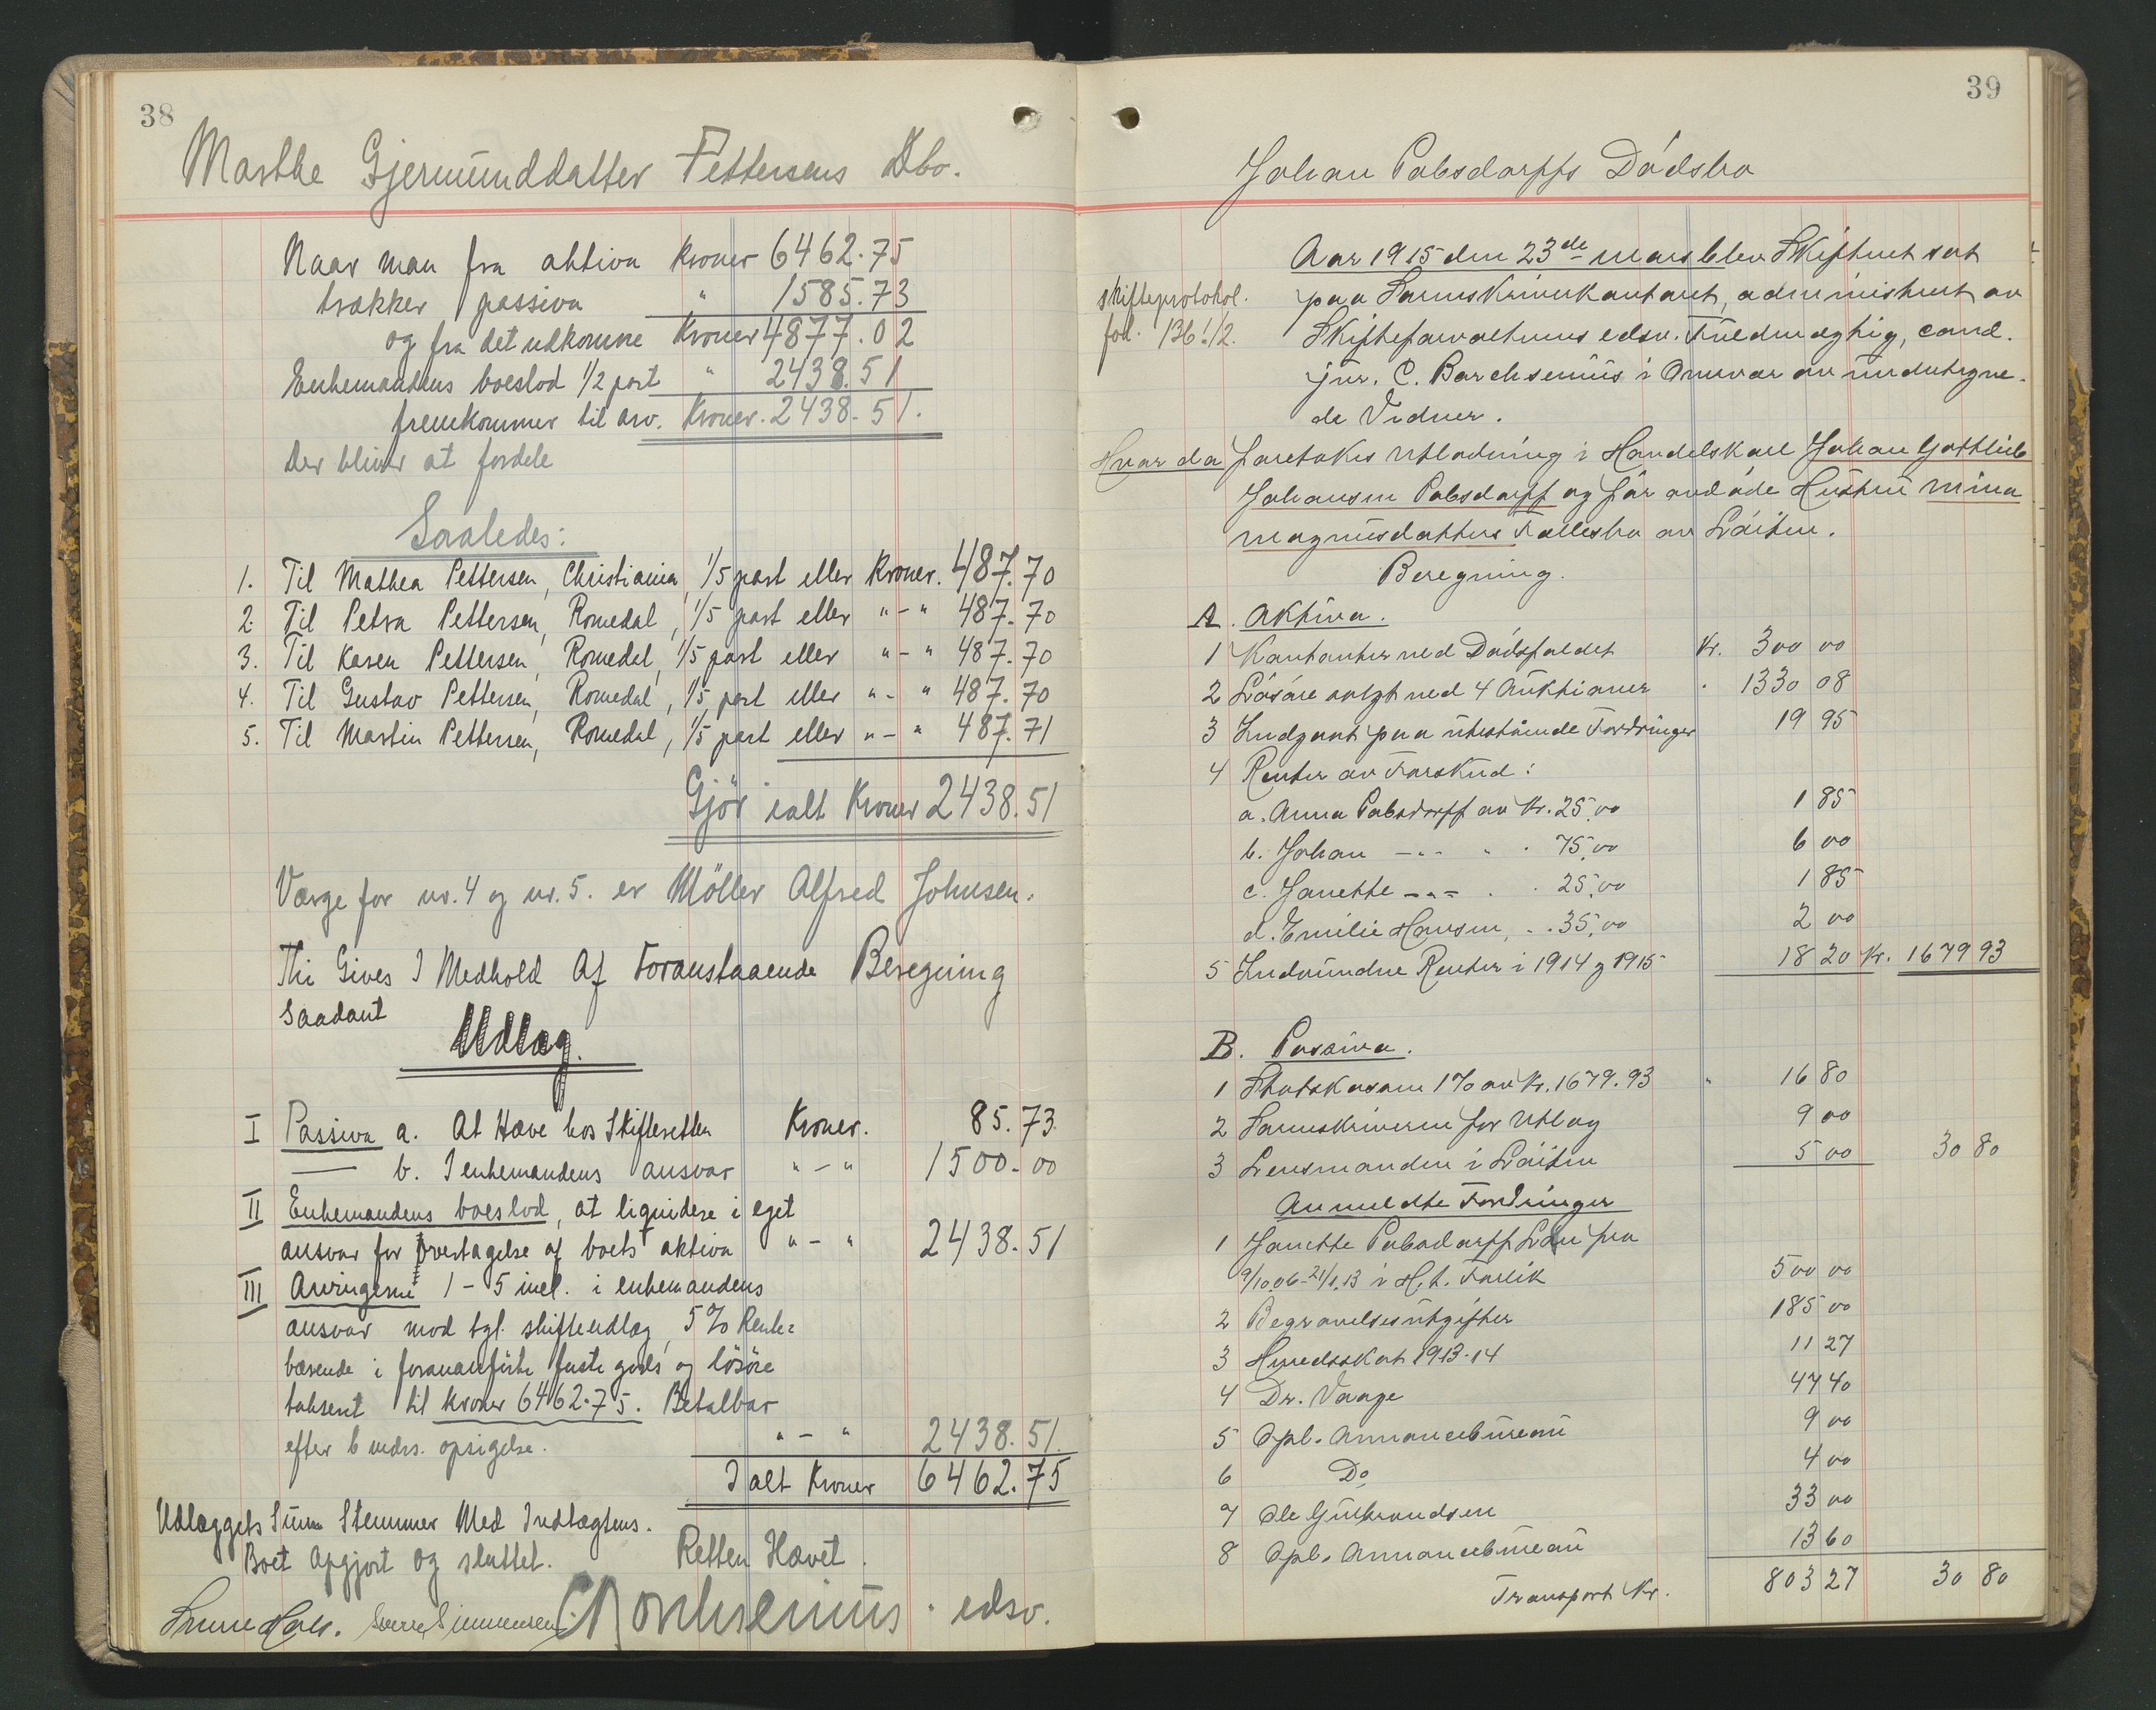 38
Marthe Gjermunddatter Pettersens Dbo.
Naar man fra aktiva Kroner 6462.75
trækker passiva " 1585.73
og fra det udkomne Kroner 4877.02
Enkemandens boeslod 1/2 part " 2438.51
fremkommer til arv. Kroner. 2438.51.
Der bliver at fordele
Saaledes:
1. Til Mathea Pettersen, Christiania, 1/5 part eller Kroner. 487.70
2. Til Petra Pettersen, Romedal, 1/5 part eller "-" 487.70
3. Til Karen Pettersen, Romedal, 1/5 part eller "-" 487.70
4. Til Gustav Pettersen, Romedal, 1/5 part eller "-" 487.70
5. Til Martin Pettersen, Romedal, 1/5 part eller "-" 487.71
Gjör ialt Kroner 2438.51
Værge for nr. 4 og nr. 5. er Möller Alfred Johnsen.
Thi Gives I Medhold Af Foranstaaende Beregning
Saadant
Udlæg.
I Passiva a. At Hæve hos Skifteretten Kroner. 85.73
— b. I enkemandens ansvar "-" 1500.00
II Enkemandens boeslod, at liquidere i eget
ansvar for overtagelse af boets aktiva "-" 2438.51
III Arvingerne 1-5 incl. i enkemandens
ansvar mod tgl. skifteudlæg, 5% Rente=
bærende i forananförte faste gods og lösöre
taksert til kroner 6462.75. Betalbar
efter 6 mdrs. opsigelse. "-" 2438.51.
I alt Kroner 6462.75
Udlæggets Sum Stemmer Med Indtægtens.
Boet Opgjort og sluttet. Retten Hævet.
Sverre Simmensen C Borchsenius. edsv.
39
Johan Pabsdorffs Dödsbo
Aar 1915 den 23de mars blev Skifteret sat
skifteprotokol. paa Sorenskriverkontoret, administrert av
fol. 136!/2. Skifteforvalterens edsv. Fuldmægtig, cand.
jur. C. Borchsenius i Overvær av undertegne-
de Vidner.
Hvor da foretokes Utlodning i Handelskarl Johan Gottlieb
Johansen Pabsdorff og før avdöde Hustru Mina
Magnusdatters Fællesbo av Löiten.
Beregning.
A. Aktiva.
1 Kontanter ved Dödsfaldet Kr. 300 00
2 Lösöre solgt ved 4 Auktioner " 1330 08
3 Indgaat paa utestående Fordringer 19 95
4 Renter av Forskud:
a. Anna Pabsdorff av Kr. 25,00 1 85
b. Johan -"- " . 75,00 6 00
c. Janette -"- . . 25,00 1 85
d. Emilie Hansen, . . 35,00 2 00
5 Indvundne Renter i 1914 og 1915 18 20 Kr. 1679 93
B. Passiva.
1 Statskassen 1% av Kr. 1679.93 " 16 80
2 Sorenskriveren for Utlæg 9 00
3 Lensmanden i Löiten 5 00 30 80
Anmeldte Fordringer
1 Janette Pabsdorff Lön fra
9/10.06-21/1.13 i H.t. Forlik 500 00
2 Begravelsesutgifter 185 00
3 Herredsskat 1913-14 11 27
4 Dr. Vaage 47 40
5 Opl. Annoncebureau 9 00
6 Do 4 00
7 Ole Gulbrandsen 33 00
8 Opl. Annoncebureau 13 60
Transport Kr. 803 27 30 80